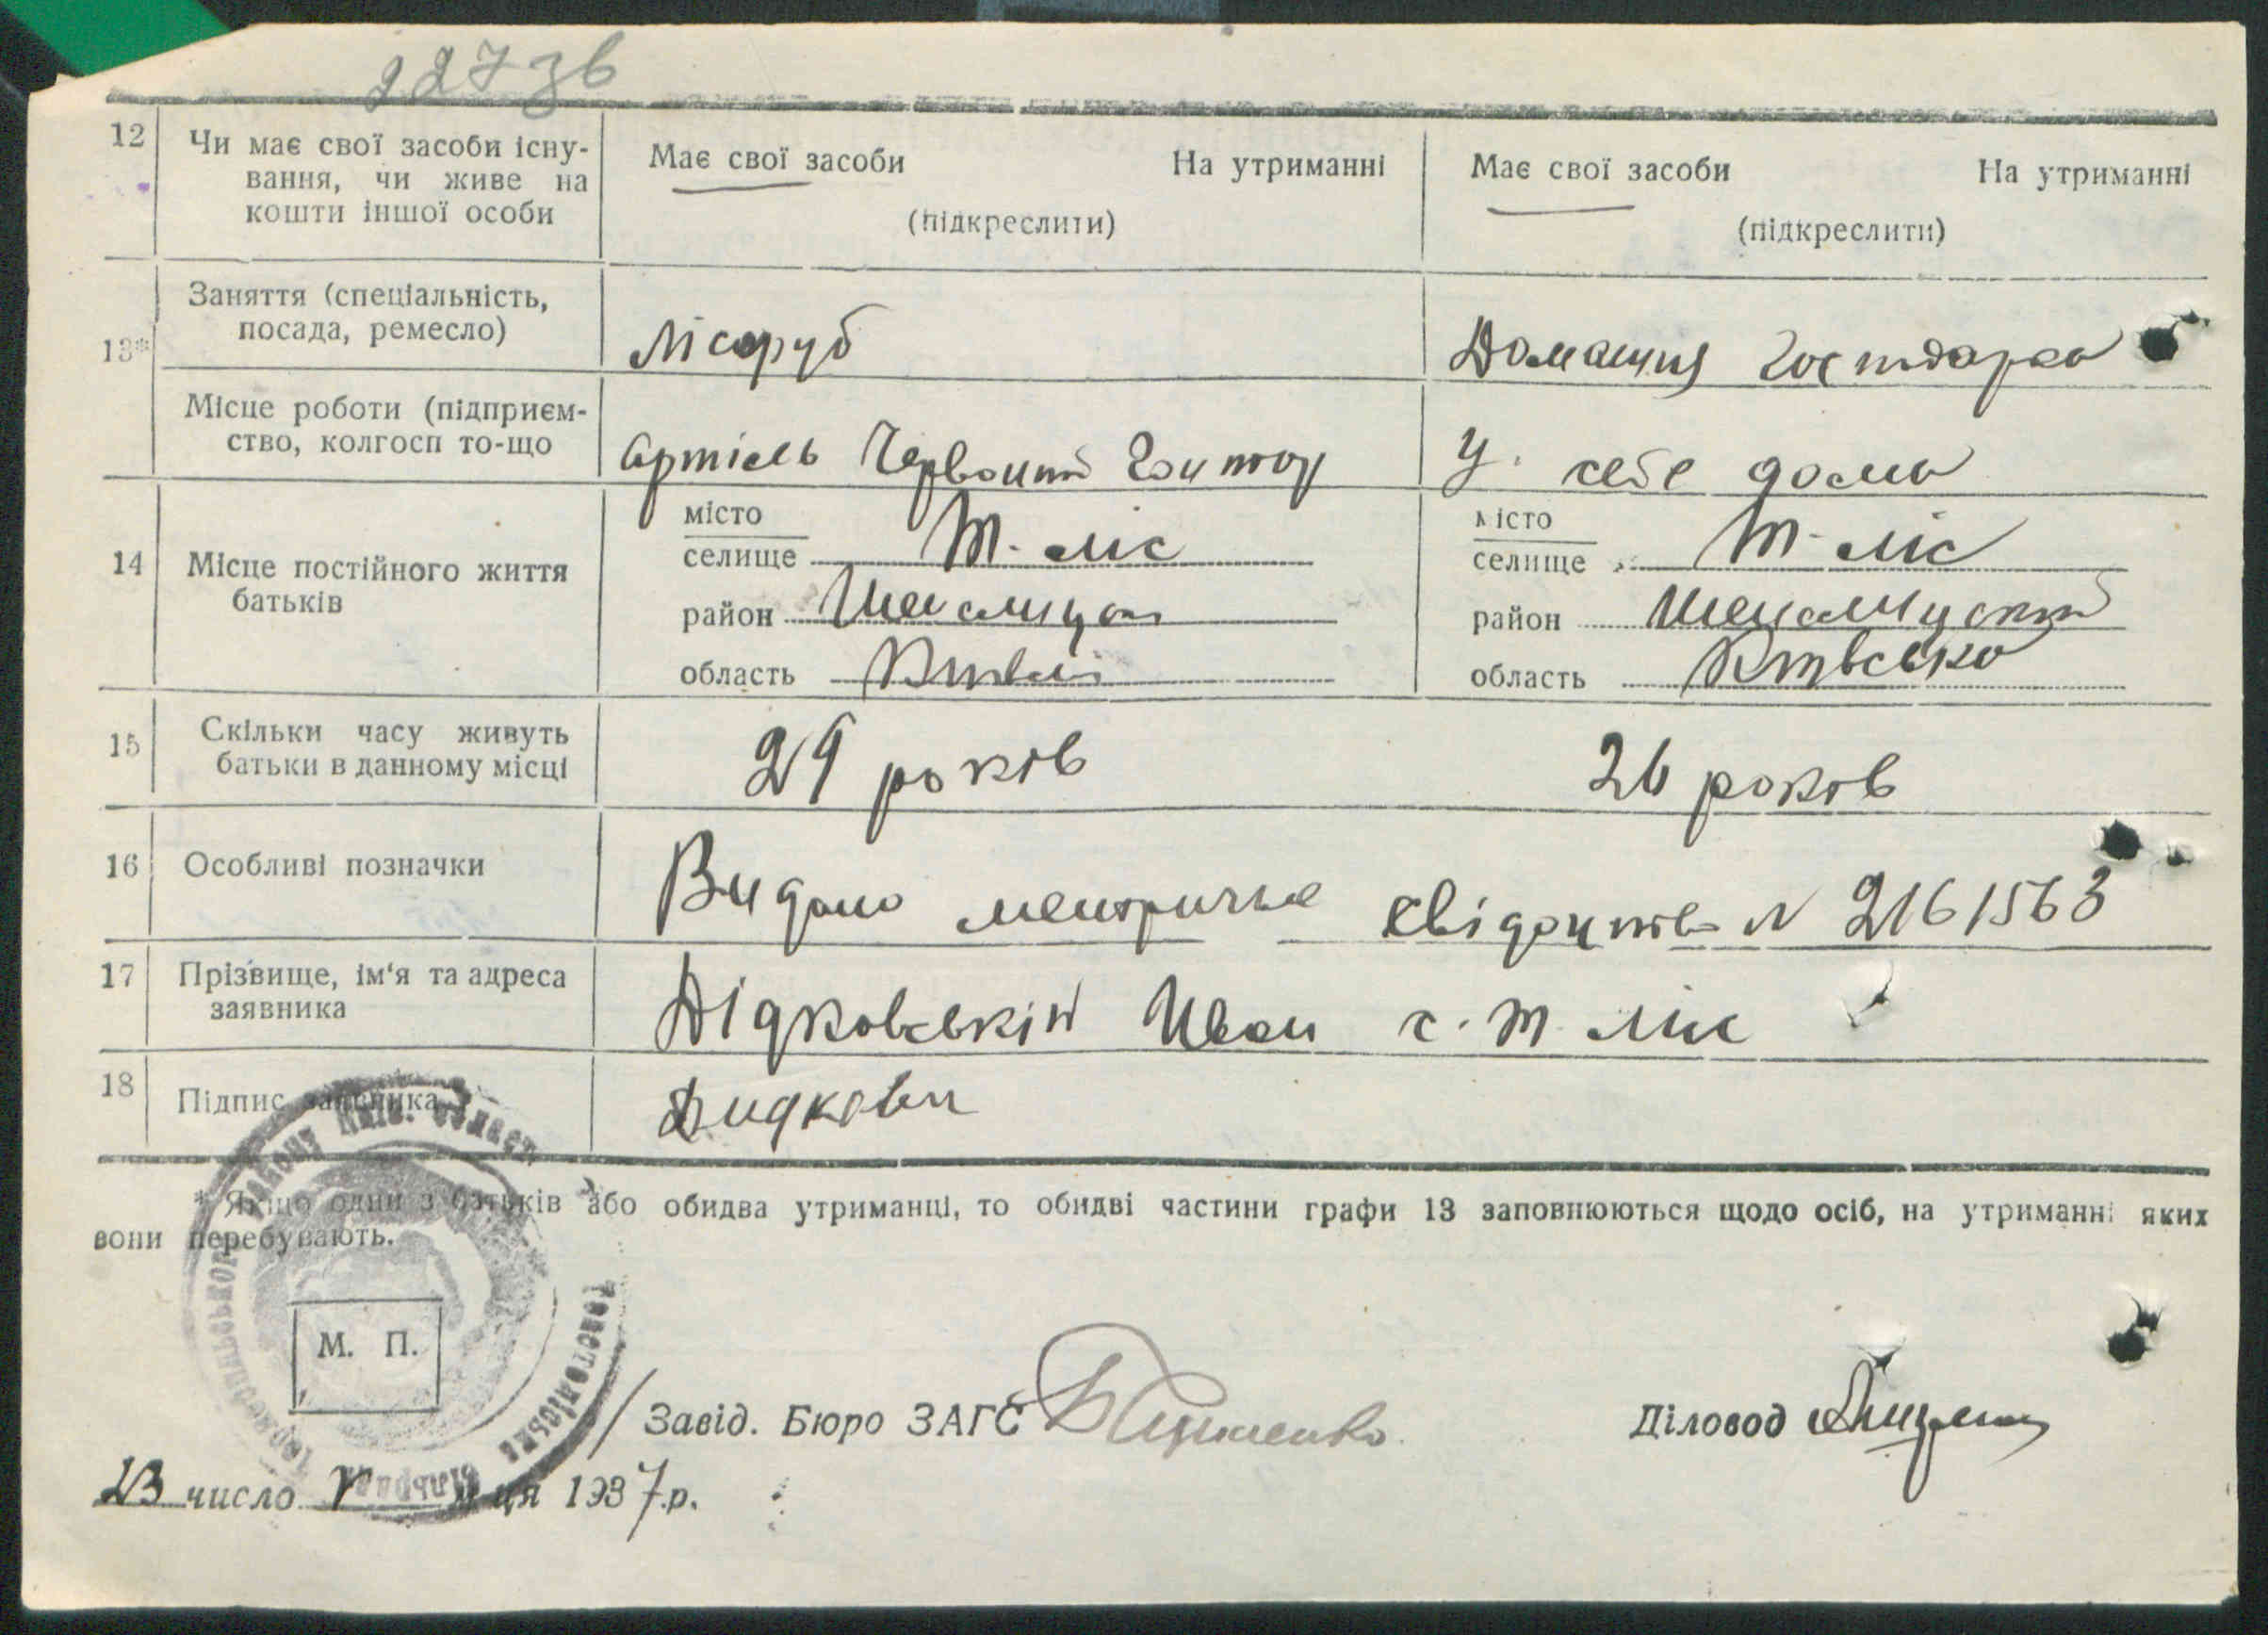 227 зв
12 Чи має свої засоби існу-
вання, чи живе на
кошти іншої особи
Має свої засоби На утриманні
(підкреслити)
Має свої засоби На утриманні
(підкреслити)
13* Заняття (спеціальність,
посада, ремесло)
Лісоруб
Домашня Господарка
Місце роботи (підприєм-
ство, колгосп то-що
Артіль Червоний
У себе дома
14 Місце постійного життя
батьків
місто
селище Т-ліс
район
область
місто
селище Т-ліс
район
область Київсько
15 Скільки часу живуть
батьки в данному місці
29 років
26 років
16 Особливі позначки
Видано метричне свідоцтво N 2161563
17 Прізвище, ім'я та адреса
заявника
Дідковській Иван с. Т. ліс
18 Підпис заявника
Дидковск
* Якщо один з батьків або обидва утриманці, то обидві частини графи 13 заповнюються щодо осіб, на утриманні яких
вони перебувають.
М. П.
Завід. Бюро ЗАГС
Діловод
23 число V м-ця 1937 р.